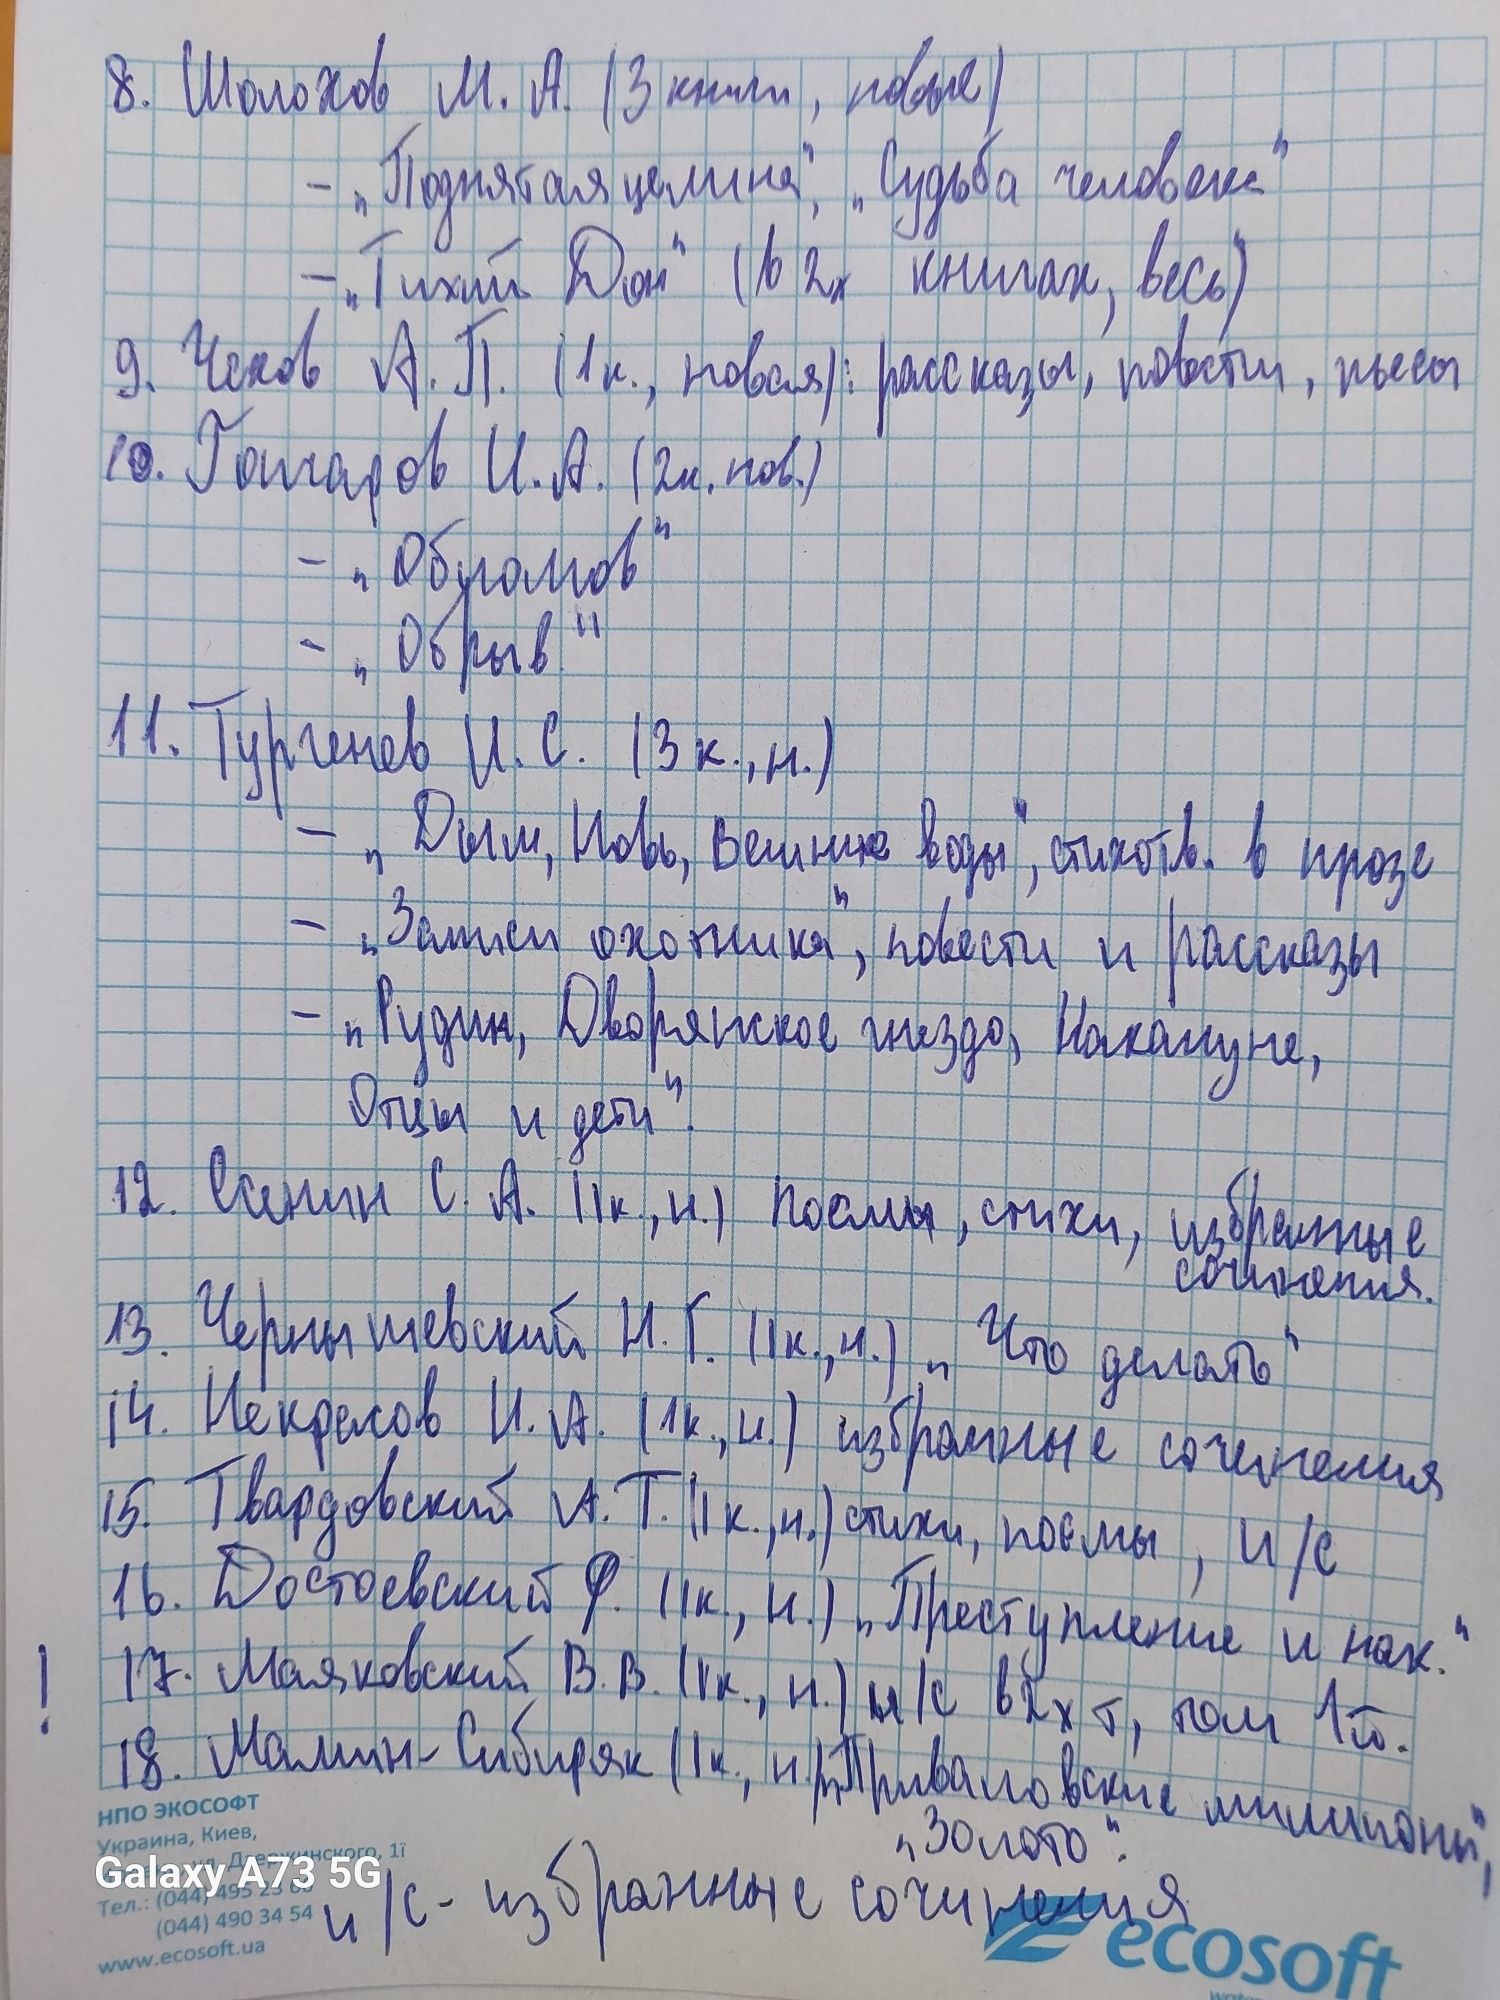 8. Шолохов М. А. (3 книги, новые)
- „Поднятая целина", „Судьба человека"
- „Тихий Дон" (в 2х книгах, весь)
9. Чехов А. П. (1к., новая): рассказы, повести, пьесы
10. Гончаров И. А. (2к. нов.)
- „Обломов"
- „Обрыв"
11. Тургенев И. С. (3 к., н.)
- „Дым, Новь, Вешние воды", стихотв. в прозе
- „Записки охотника", повести и рассказы
- „Рудин, Дворянское гнездо, Накануне,
Отцы и дети".
12. Есенин С. А. (1к., н.) поэмы, стихи, избранные
сочинения.
13. Чернышевский Н. Г. (1к., н.) „Что делать"
14. Некрасов Н. А. (1к., н.) избранные сочинения
15. Твардовский А. Т. (1к., н.) стихи, поэмы, и/с
16. Достоевский Ф. (1к., н.) „Преступление и нак."
! 17. Маяковский В. В. (1к., н.) и/с в 2х т, том 1й.
18. Мамин-Сибиряк (1к., н.) „Приваловские миллионы",
„Золото".
и/с - избранные сочинения
НПО ЭКОСОФТ
Украина, Киев,
ул. Дзержинского, 1ї
Galaxy A73 5G
Тел.: (044) 495 23
(044) 490 34 54
www.ecosoft.ua
ecosoft